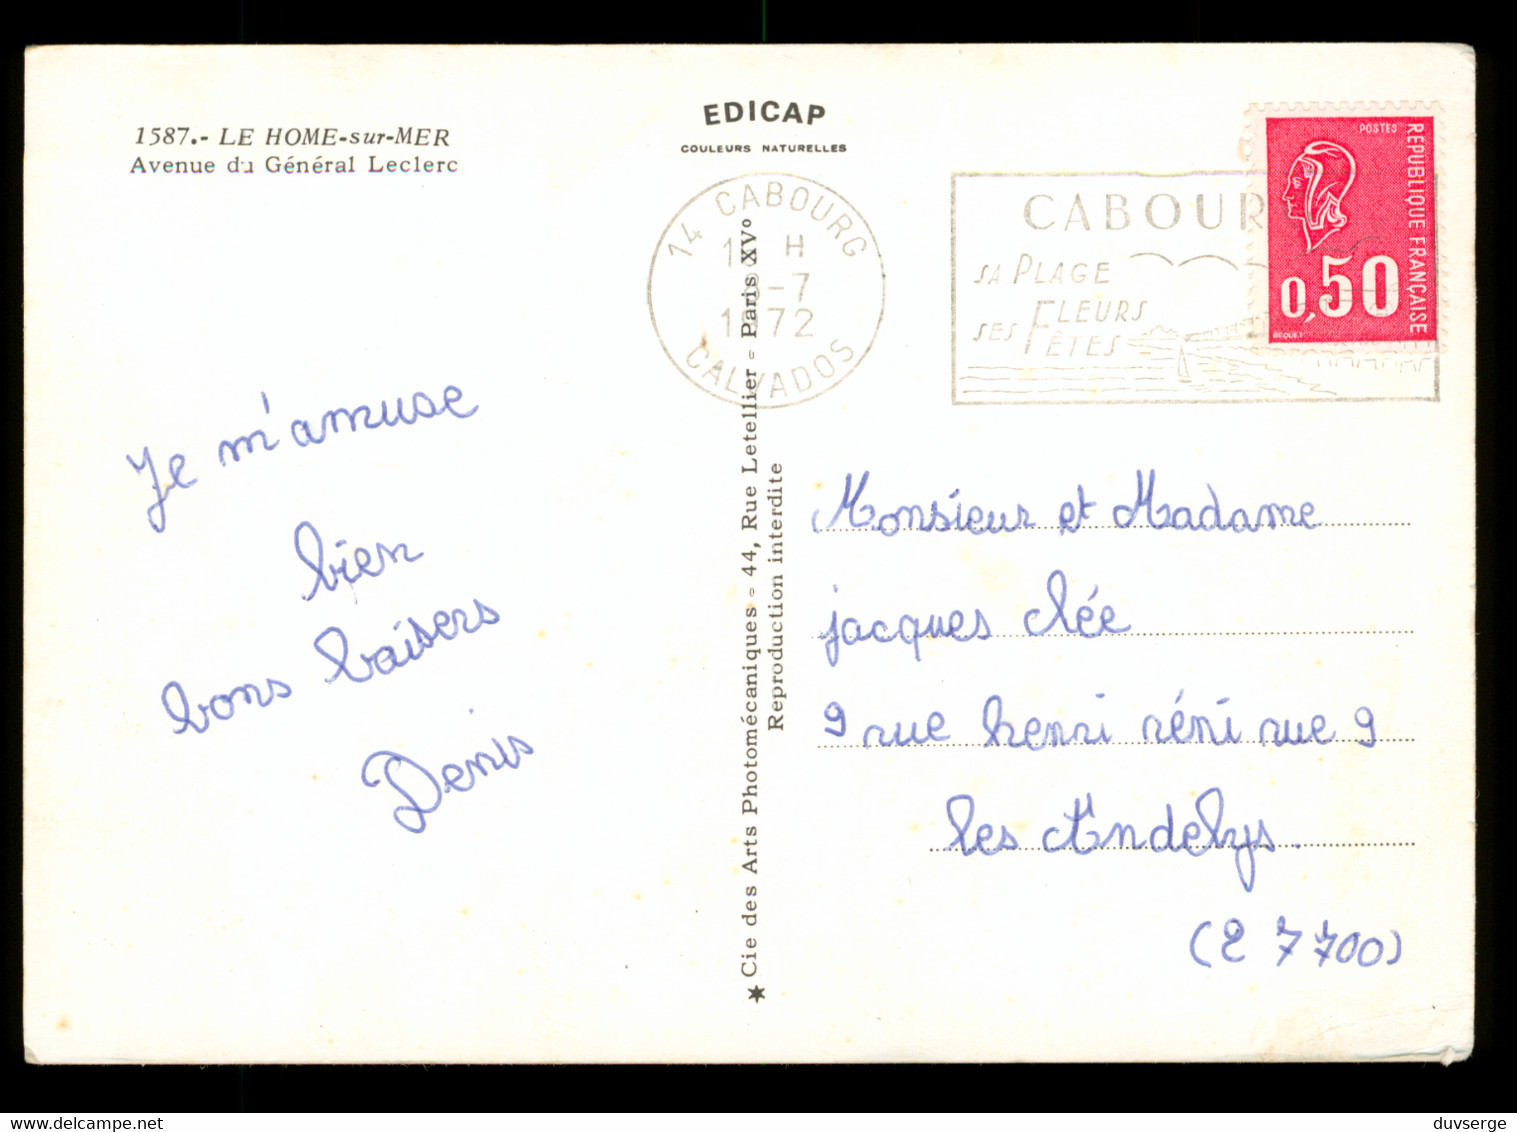 1587.- LE HOME-sur-MER
Avenue du Général Leclerc
EDICAP
COULEURS NATURELLES
14 CABOURG
H
8-7
1972
CALVADOS
CABOUR
SA PLAGE
SES FLEURS
FÊTES
POSTES
REPUBLIQUE FRANÇAISE
0,50
BEQUET
Je m'amuse
bien
bons baisers
Denis
★ Cie des Arts Photomécaniques - 44, Rue Letellier - Paris XVº
Reproduction interdite
Monsieur et Madame
jacques clée
9 rue henri réni rue 9
les Andelys.
(27700)
duvserge
delcampe.net